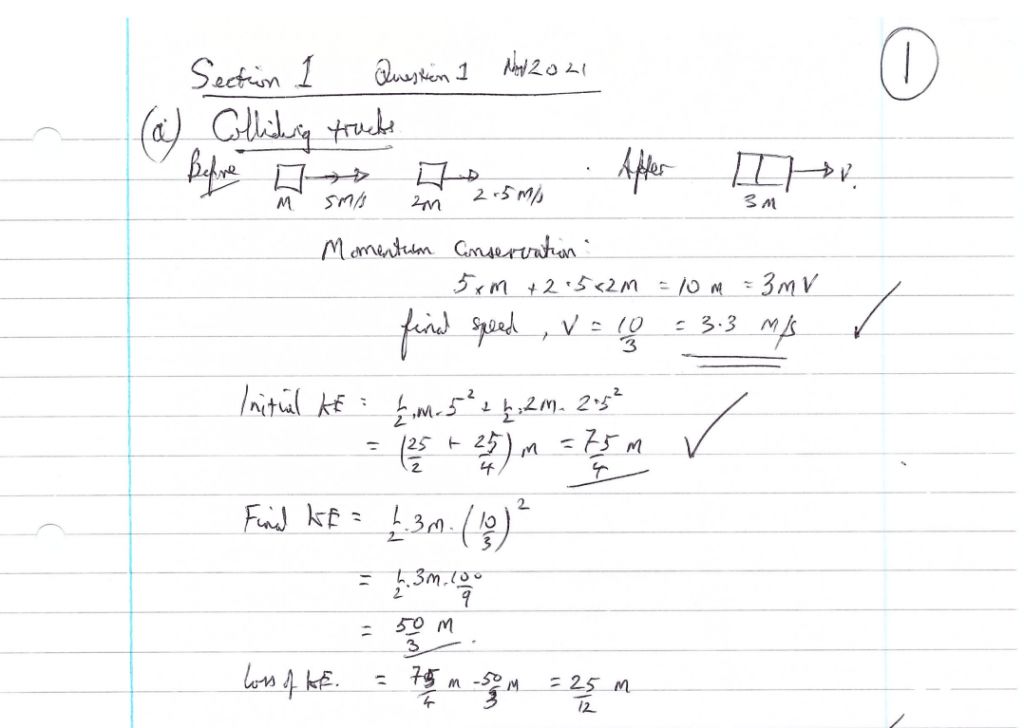 1
Section 1 Question 1 Nov 2021
(a) Colliding trucks
Before M 5 m/s 2m 2.5 m/s After 3M V.
Momentum Conservation:
5×m + 2.5×2m = 10 m = 3mV
final speed, V = 10/3 = 3.3 m/s ✓
Initial KE = 1/2.m.5² + 1/2.2m.2.5²
= (25/2 + 25/4) m = 75/4 m ✓
Final KE = 1/2.3m.(10/3)²
= 1/2.3m.100/9
= 50/3 M.
Loss of KE. = 75/4 m - 50/3 M = 25/12 m